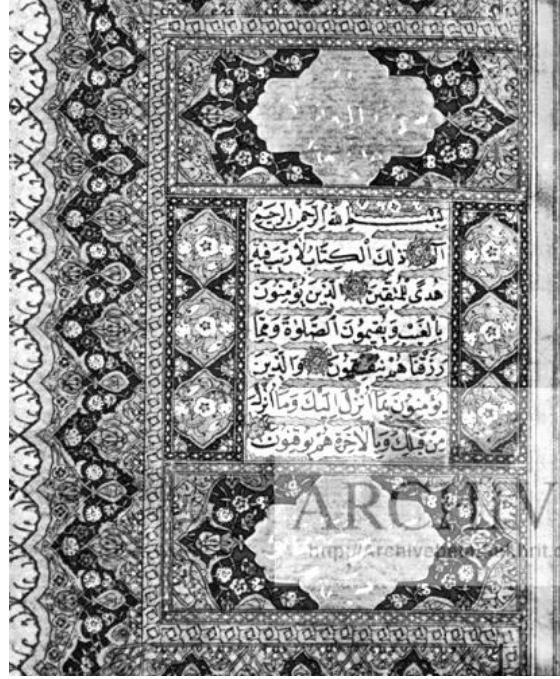 سورة البقرة
بسم الله الرحمن الرحيم
الم ذلك الكتاب لا ريب فيه
هدى للمتقين الذين يؤمنون
بالغيب ويقيمون الصلوة ومما
رزقناهم ينفقون والذين
يؤمنون بما أنزل اليك وما أنزل
من قبلك وبالاخرة هم يوقنون
ARCHIV